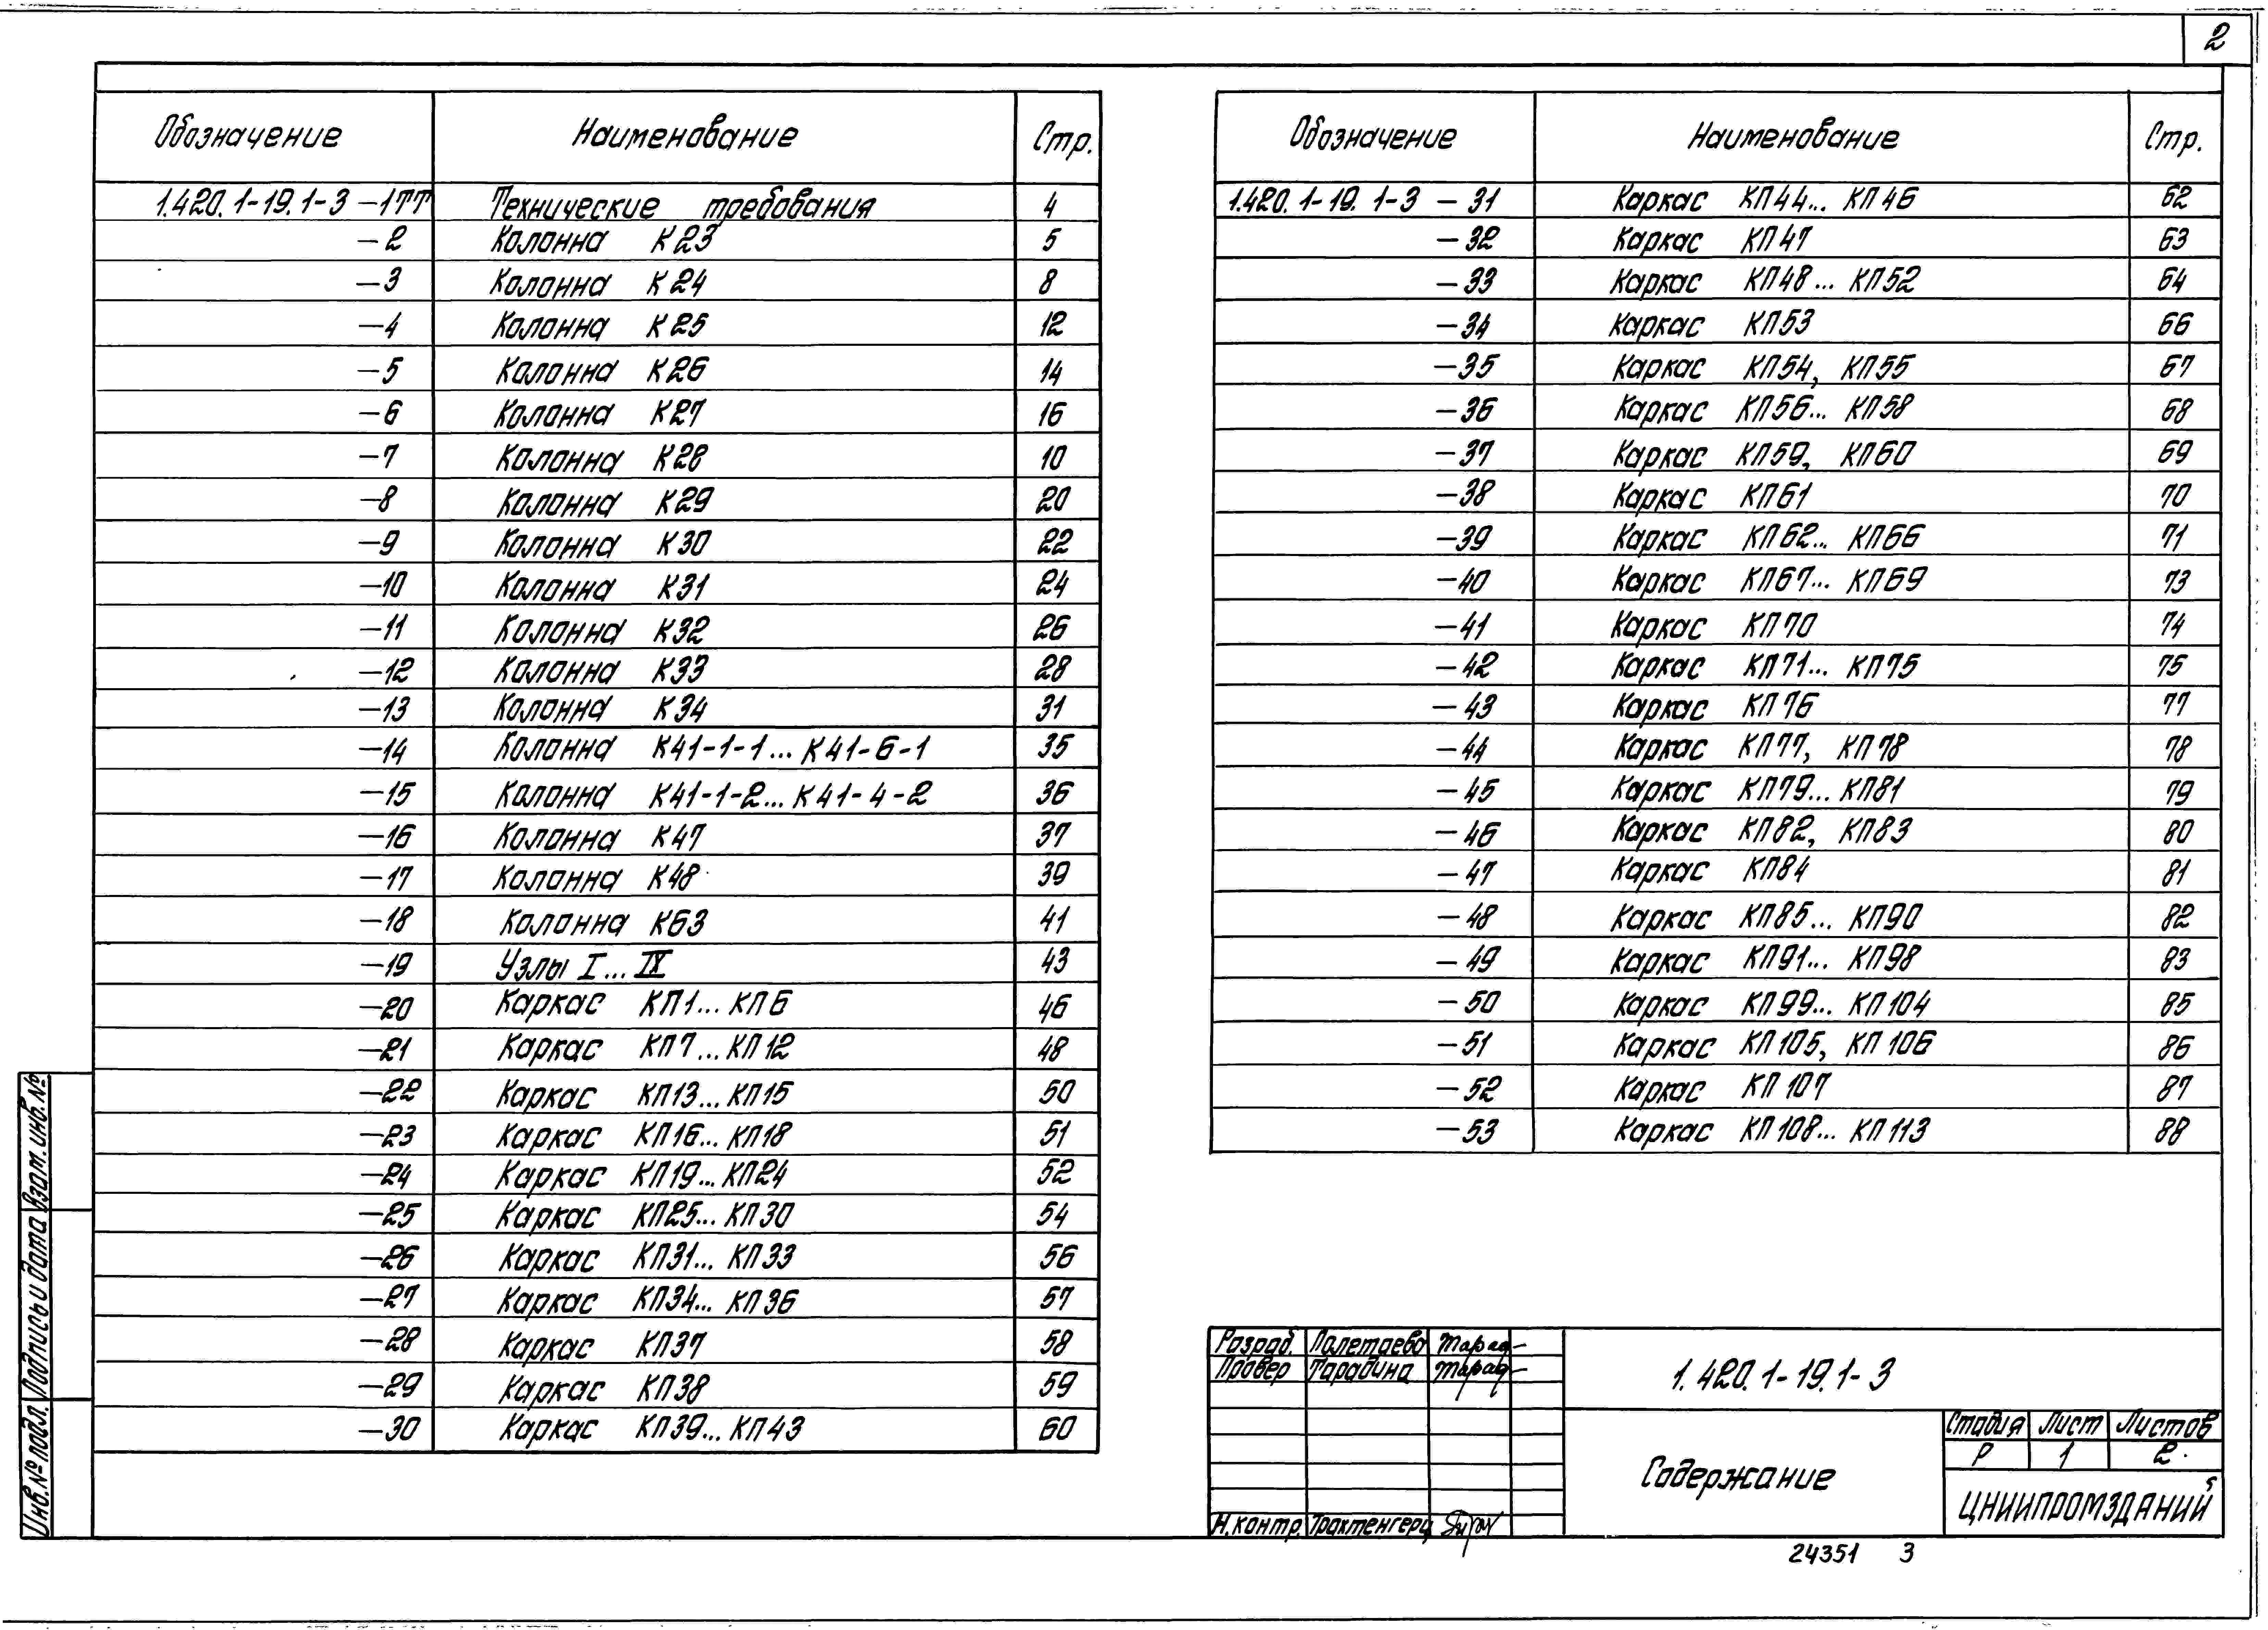 2
Обозначение Наименование Стр.
1.420.1-19.1-3 -1ТТ Технические требования 4
-2 Колонна К23 5
-3 Колонна К24 8
-4 Колонна К25 12
-5 Колонна К26 14
-6 Колонна К27 16
-7 Колонна К28 10
-8 Колонна К29 20
-9 Колонна К30 22
-10 Колонна К31 24
-11 Колонна К32 26
-12 Колонна К33 28
-13 Колонна К34 31
-14 Колонна К41-1-1...К41-6-1 35
-15 Колонна К41-1-2...К41-4-2 36
-16 Колонна К47 37
-17 Колонна К48 39
-18 Колонна К63 41
-19 Узлы I...IX 43
-20 Каркас КП1...КП6 46
-21 Каркас КП7...КП12 48
-22 Каркас КП13...КП15 50
-23 Каркас КП16...КП18 51
-24 Каркас КП19...КП24 52
-25 Каркас КП25...КП30 54
-26 Каркас КП31...КП33 56
-27 Каркас КП34...КП36 57
-28 Каркас КП37 58
-29 Каркас КП38 59
-30 Каркас КП39...КП43 60
Обозначение Наименование Стр.
1.420.1-19.1-3 -31 Каркас КП44...КП46 62
-32 Каркас КП47 63
-33 Каркас КП48...КП52 64
-34 Каркас КП53 66
-35 Каркас КП54, КП55 67
-36 Каркас КП56...КП58 68
-37 Каркас КП59, КП60 69
-38 Каркас КП61 70
-39 Каркас КП62...КП66 71
-40 Каркас КП67...КП69 73
-41 Каркас КП70 74
-42 Каркас КП71...КП75 75
-43 Каркас КП76 77
-44 Каркас КП77, КП78 78
-45 Каркас КП79...КП81 79
-46 Каркас КП82, КП83 80
-47 Каркас КП84 81
-48 Каркас КП85...КП90 82
-49 Каркас КП91...КП98 83
-50 Каркас КП99...КП104 85
-51 Каркас КП105, КП106 86
-52 Каркас КП107 87
-53 Каркас КП108...КП113 88
Взам. инв. №
Подпись и дата
Инв. № подл.
Разраб. Полетаева
Провер Тарадина
Н.контр. Трахтенгерц
1.420.1-19.1-3
Содержание
Стадия Лист Листов
Р 1 2
ЦНИИПРОМЗДАНИЙ
24351 3